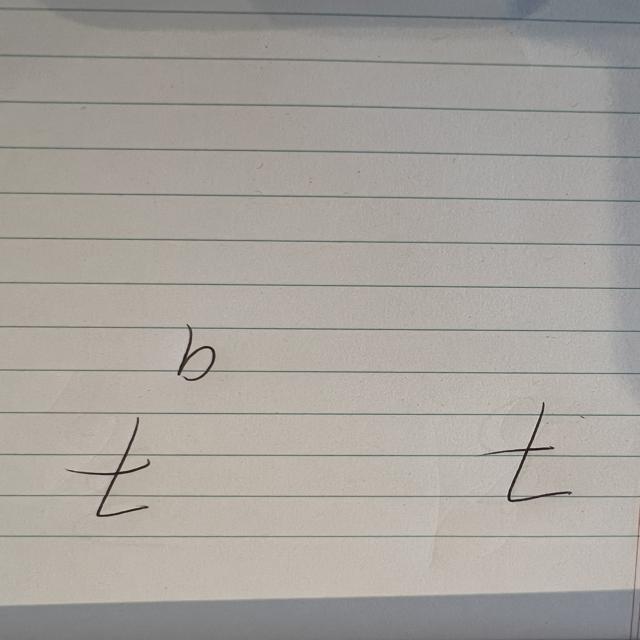 b
t t